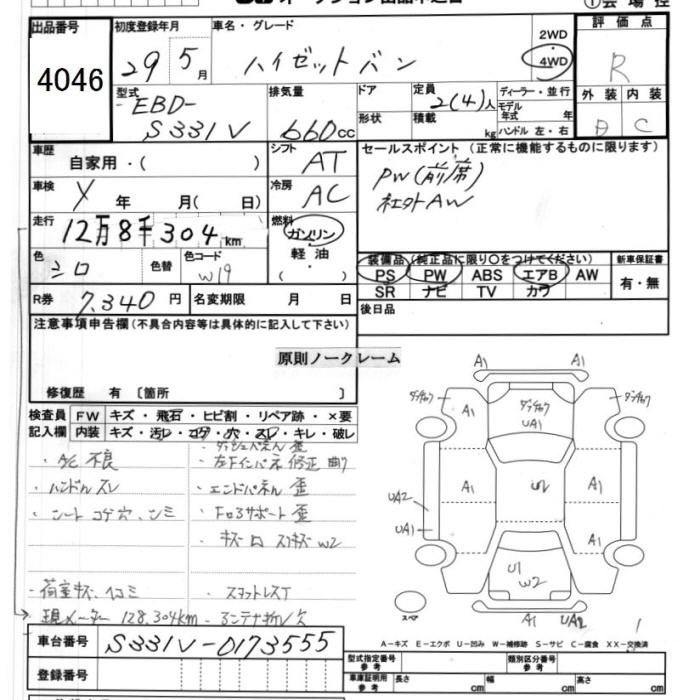 出品番号
4046
初度登録年月
29 5月
車名・グレード
ハイゼットバン
2WD
4WD
評価点
R
型式
EBD-
S331V
排気量
660cc
ドア
形状
定員
2(4)人
積載
kg
ディーラー・並行
モデル年式 年
ハンドル 左・右
外装 内装
C
車歴
自家用・( )
シフト
AT
セールスポイント(正常に機能するものに限ります)
PW(前席)
社外AW
車検
年 月( 日)
冷房
AC
走行
12万8千304km
燃料
ガソリン
軽油
( ・ )
色
シロ
色替
色コード
W19
装備品(純正品に限り○をつけてください)
PS PW ABS エアB AW
SR ナビ TV カワ
新車保証書
有・無
R券
7,340円
名変期限 月 日
後日品
注意事項申告欄(不具合内容等は具体的に記入して下さい)
原則ノークレーム
修復歴 有〔箇所 〕
検査員記入欄
FW キズ・飛石・ヒビ割・リペア跡・×要
内装 キズ・汚レ・コゲ・穴・スレ・キレ・破レ
・A/C 不良
・左Fインパネ 修正 曲り
・ハンドルスレ
・エンドパネル 歪
・シート コゲ穴、シミ
・Fロアサポート 歪
W2
・荷室キズ、ヘコミ
・現メーター 128,304km
・アンテナ折レ欠
A1 A1
A1 UA1
U2
A1 A1
UA2
UA1
A1
U1
W2
スペア
A1 UA2
1
A-キズ E-エクボ U-凹み W-補修跡 S-サビ C-腐食 XX-交換済
車台番号
S331V-0173555
型式指定番号 参考
類別区分番号 参考
登録番号
車庫証明用 参考
長さ cm 幅 cm 高さ cm